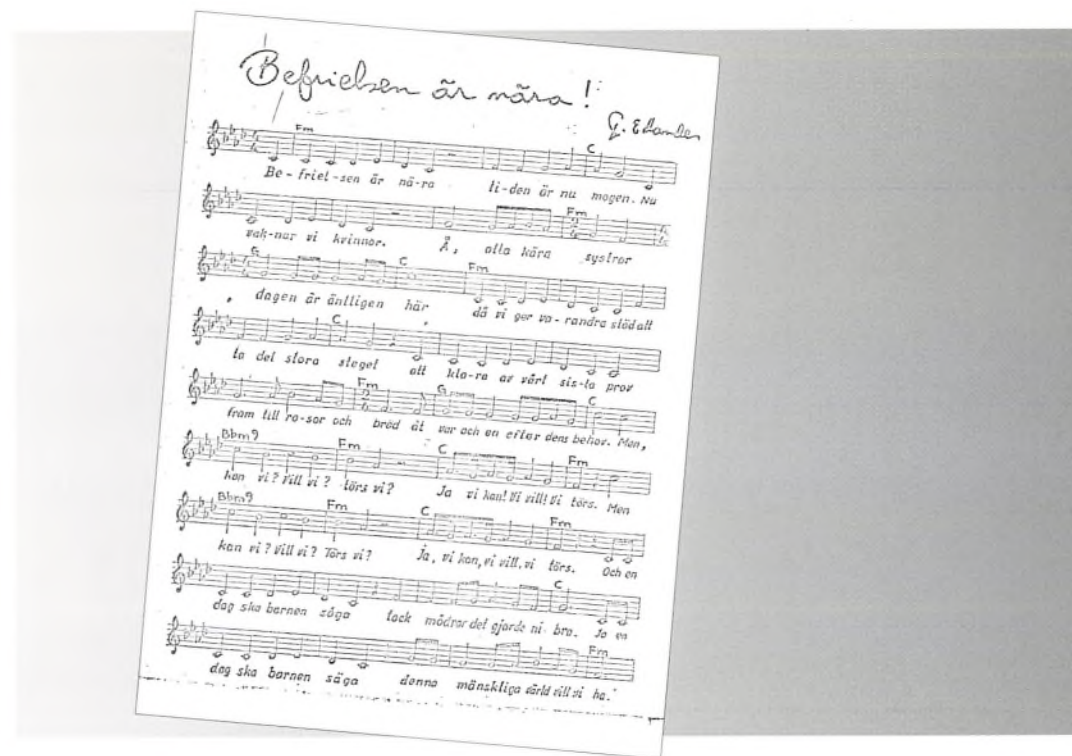 Befrielsen är nära!
G. Edander
Fm C
Be-friel-sen är nä-ra ti-den är nu mogen. Nu
Fm
vak-nar vi kvinnor. Å, alla kära systrar
G C Fm
dagen är äntligen här då vi ger va-randra stöd att
C
ta det stora steget att kla-ra av vårt sis-ta prov
Fm G C
fram till ro-sor och bröd åt var och en efter dens behov. Men,
Bbm9 Fm C Fm
kan vi? Vill vi? törs vi? Ja vi kan! Vi vill! Vi törs. Men
Bbm9 Fm C Fm
kan vi? Vill vi? Törs vi? Ja, vi kan, vi vill, vi törs. Och en
C
dag ska barnen säga tack mödrar det gjorde ni bra. Ja en
Fm
dag ska barnen säga denna mänskliga värld vill vi ha."